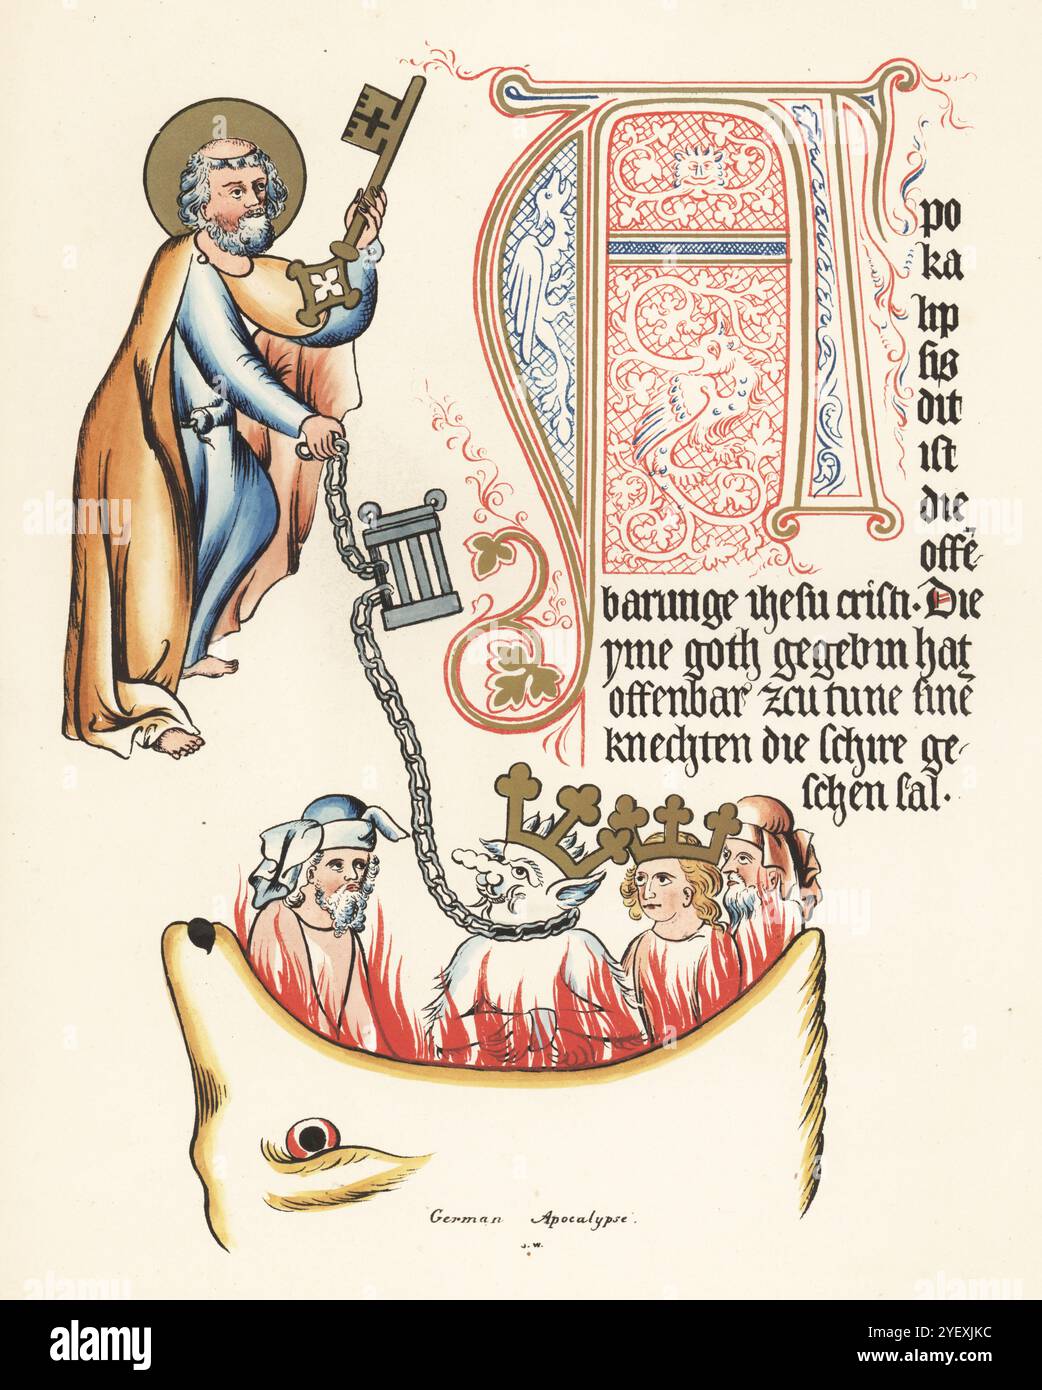 A
po
ka
lip
sis
dit
ist
die
offē-
barunge ihesu cristi. Die
yme goth gegebin hat
offenbar zcu tune sinē
knechten die schire ge-
schen sal.
German Apocalypse.
J.W.
alamy
Image ID: 2YEXJKC
www.alamy.com